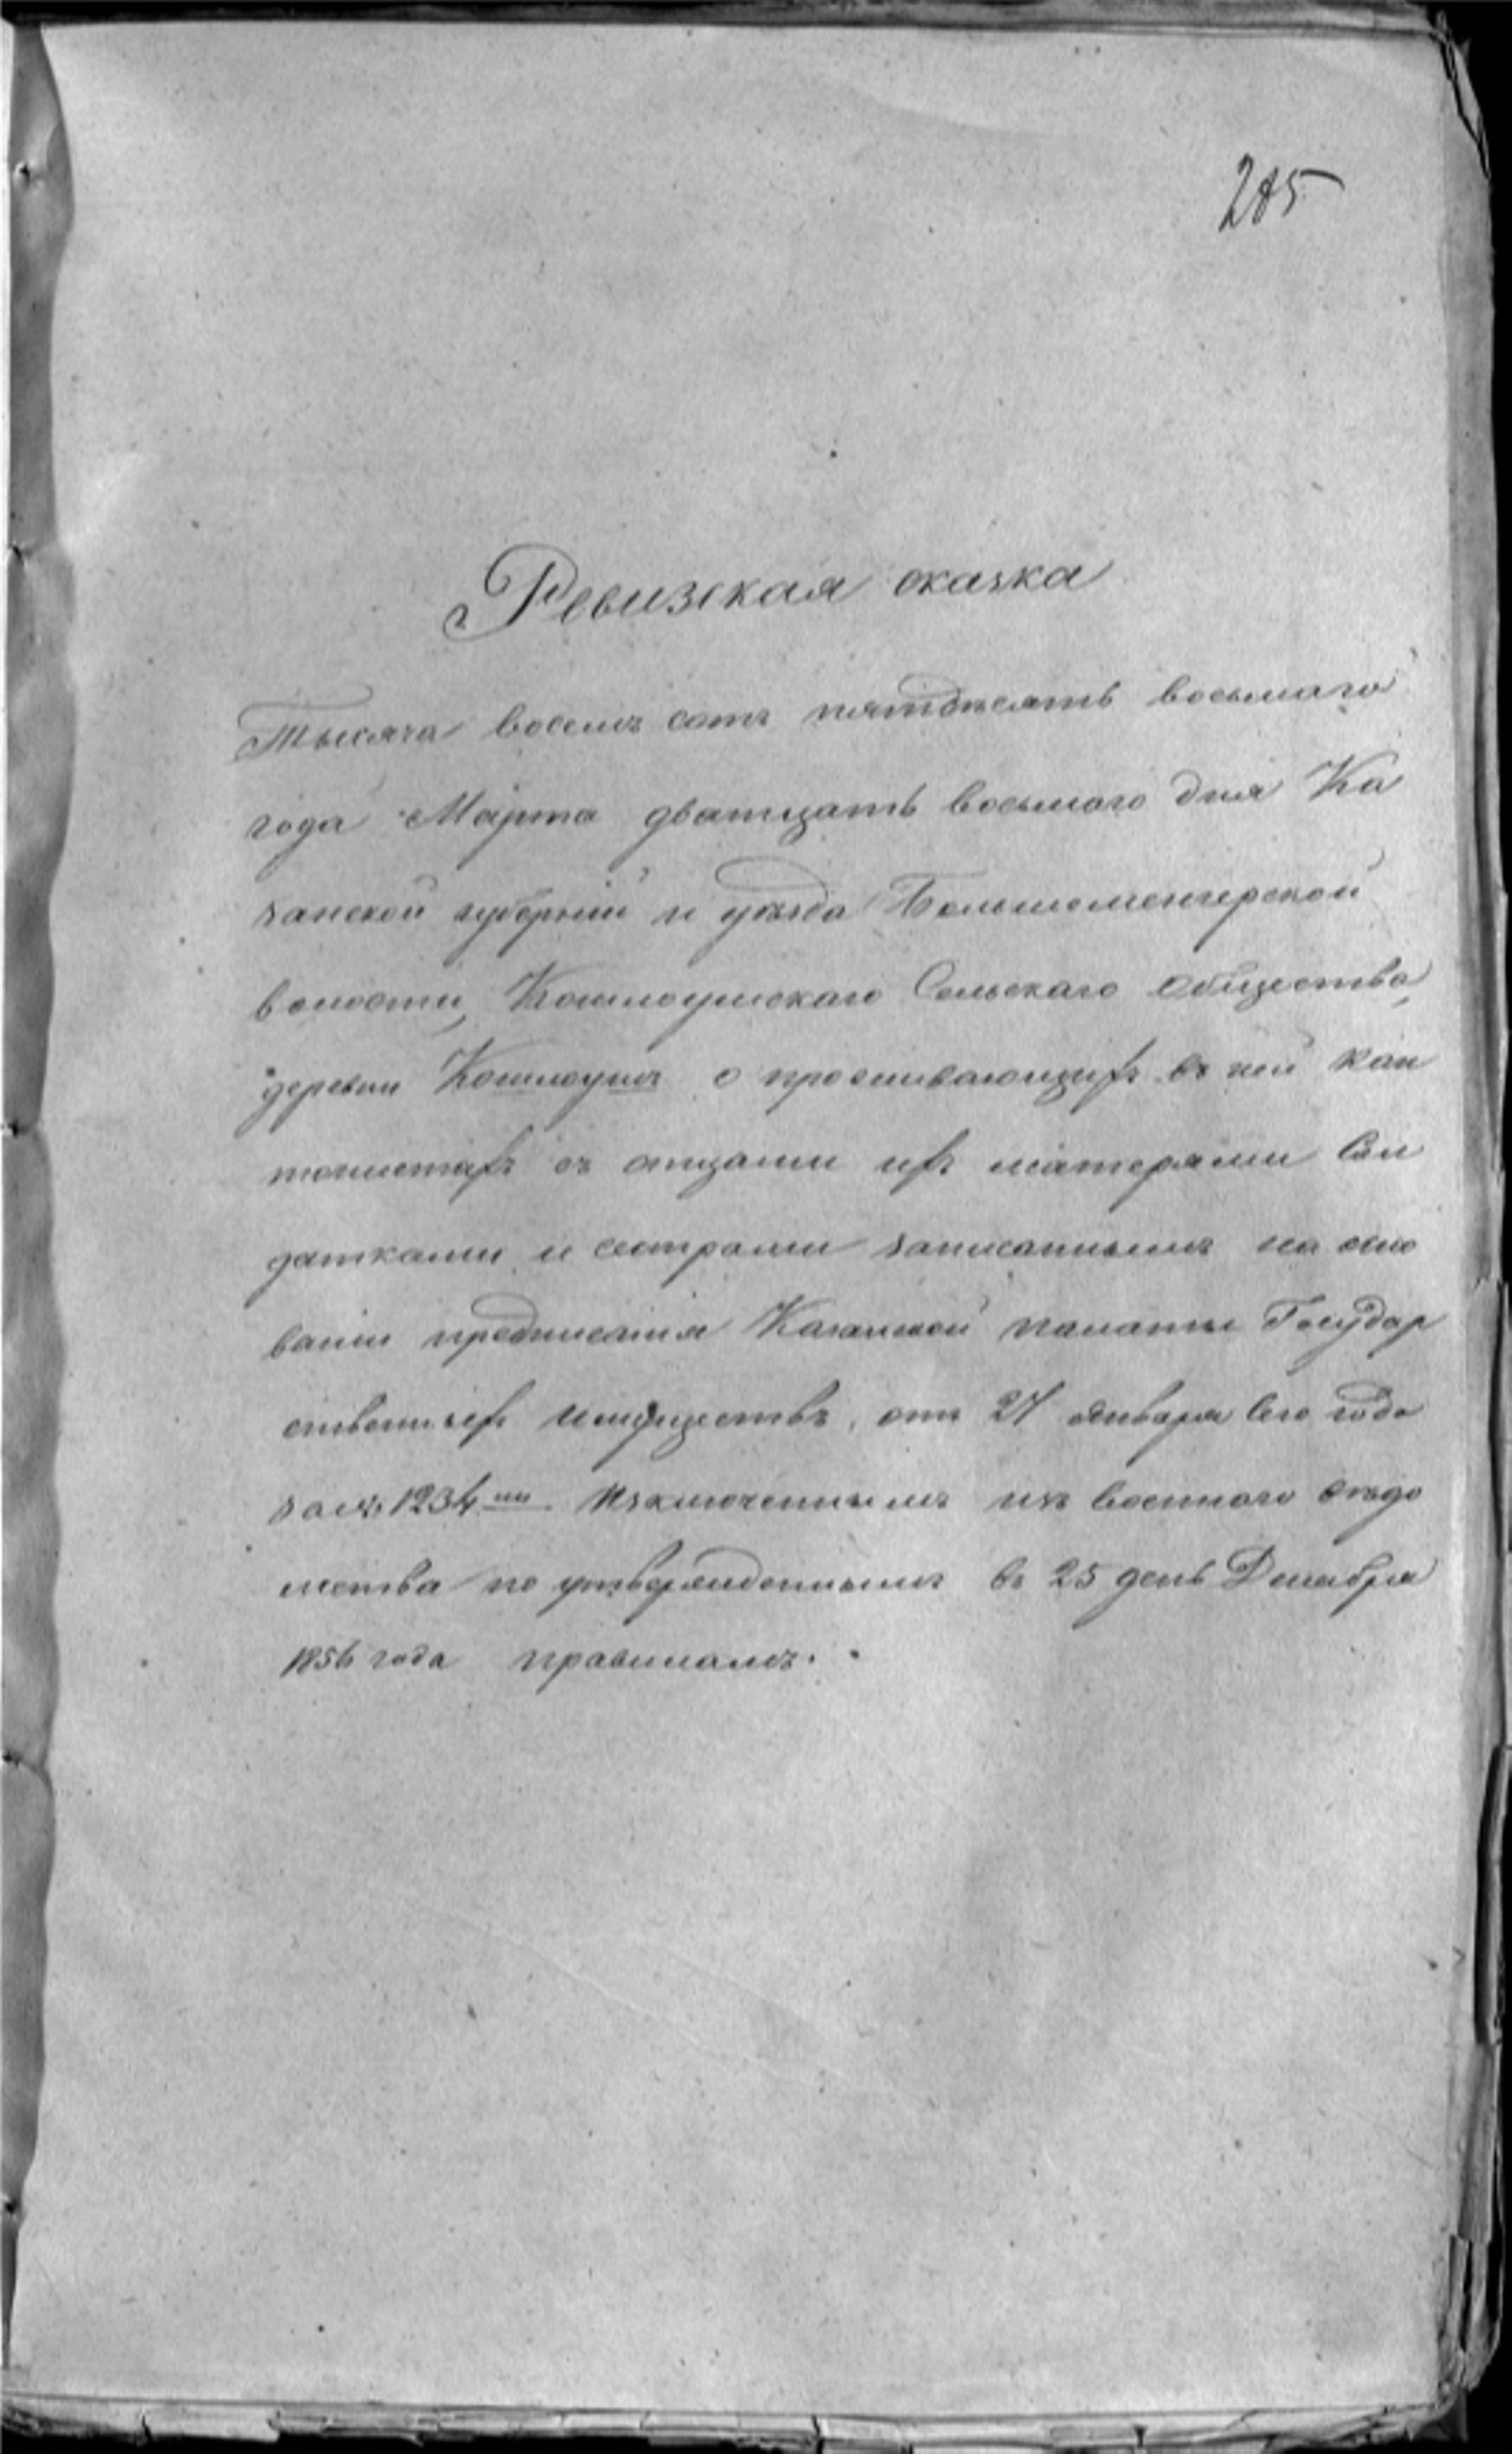 285
Ревизская сказка
Тысяча восемь сотъ пятдесять восьмаго
года Марта дватцать восьмого дня Ка
занской губерніи и уѣзда Большеменгерской
волости, Кошлоушскаго Сельскаго Общества,
деревни Кошлоушъ о проживающихъ въ ней кан
тонистахъ съ отцами ихъ матерями Сол
датками и сестрами записаннымъ на осно
ваніи предписанія Казанской палаты Государ
ственныхъ Имуществъ, отъ 27 Января Сего года
за № 1234 Изключеннымъ изъ Военнаго вѣдо
мства по утвержденнымъ въ 25 день Декабря
1856 года правиламъ.